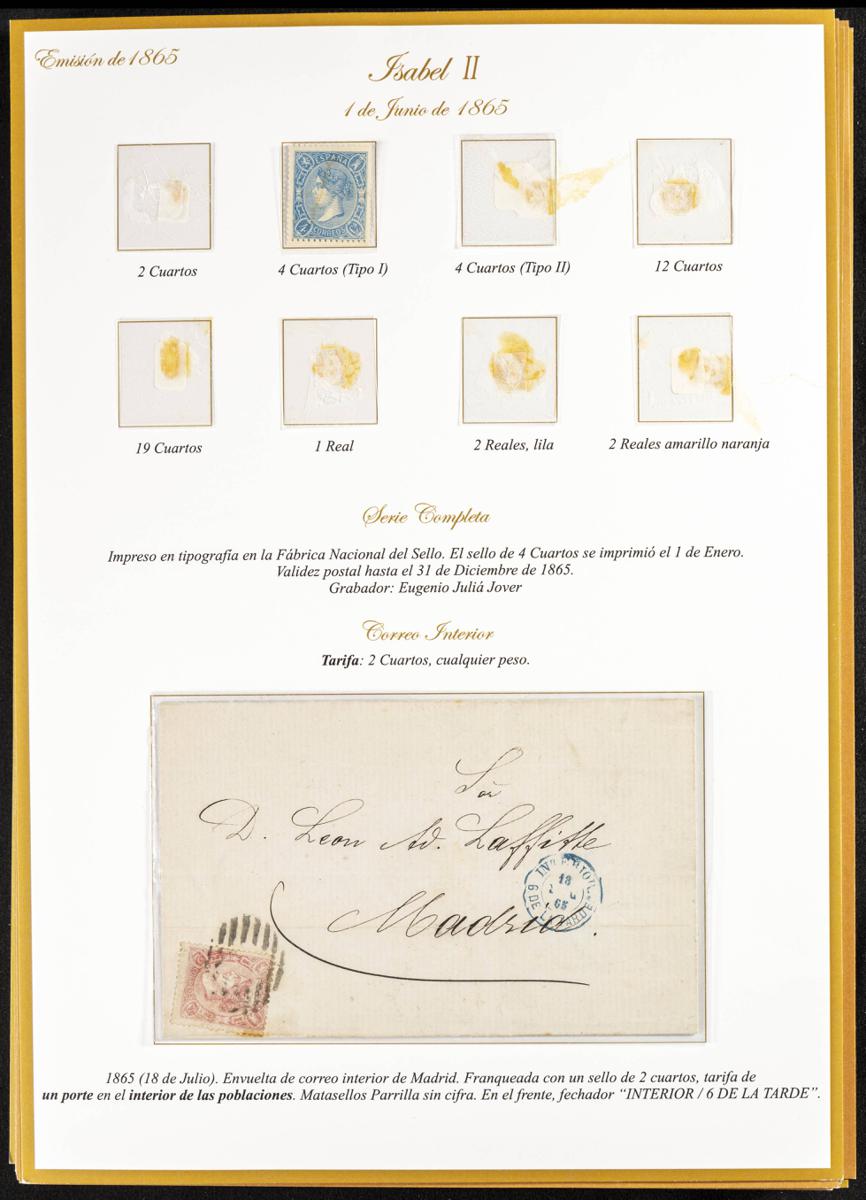 Emisión de 1865
Isabel II
1 de Junio de 1865
ESPAÑA
CORREOS
2 Cuartos
4 Cuartos (Tipo I)
4 Cuartos (Tipo II)
12 Cuartos
19 Cuartos
1 Real
2 Reales, lila
2 Reales amarillo naranja
Serie Completa
Impreso en tipografía en la Fábrica Nacional del Sello. El sello de 4 Cuartos se imprimió el 1 de Enero.
Validez postal hasta el 31 de Diciembre de 1865.
Grabador: Eugenio Juliá Jover
Correo Interior
Tarifa: 2 Cuartos, cualquier peso.
Sor
D. Leon Ad. Laffitte
Madrid.
INTERIOR
18
65
6 DE LA TARDE
1865 (18 de Julio). Envuelta de correo interior de Madrid. Franqueada con un sello de 2 cuartos, tarifa de
un porte en el interior de las poblaciones. Matasellos Parrilla sin cifra. En el frente, fechador “INTERIOR / 6 DE LA TARDE”.